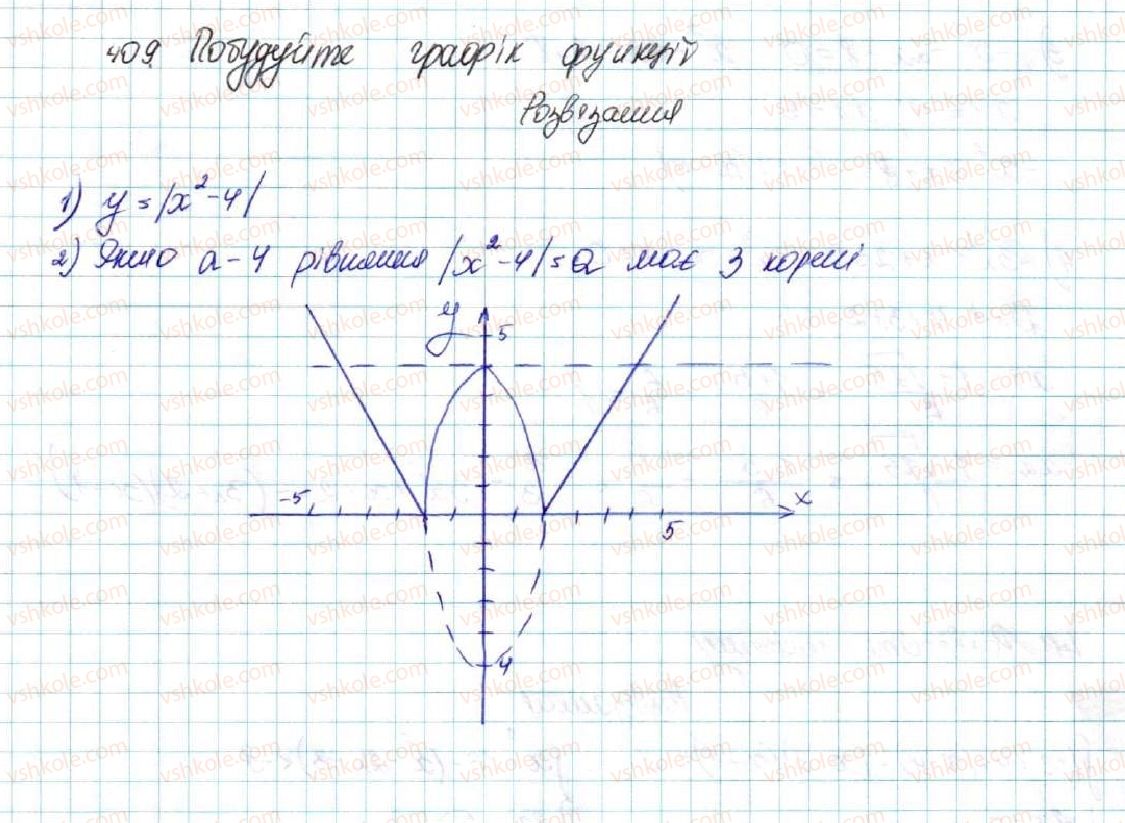 409 Побудуйте графік функцій
Розвязання
1) y = |x² - 4|
2) Якщо a - 4 рівняння |x² - 4| = a має 3 корені
y
5
-5
x
5
4
vshkole.com